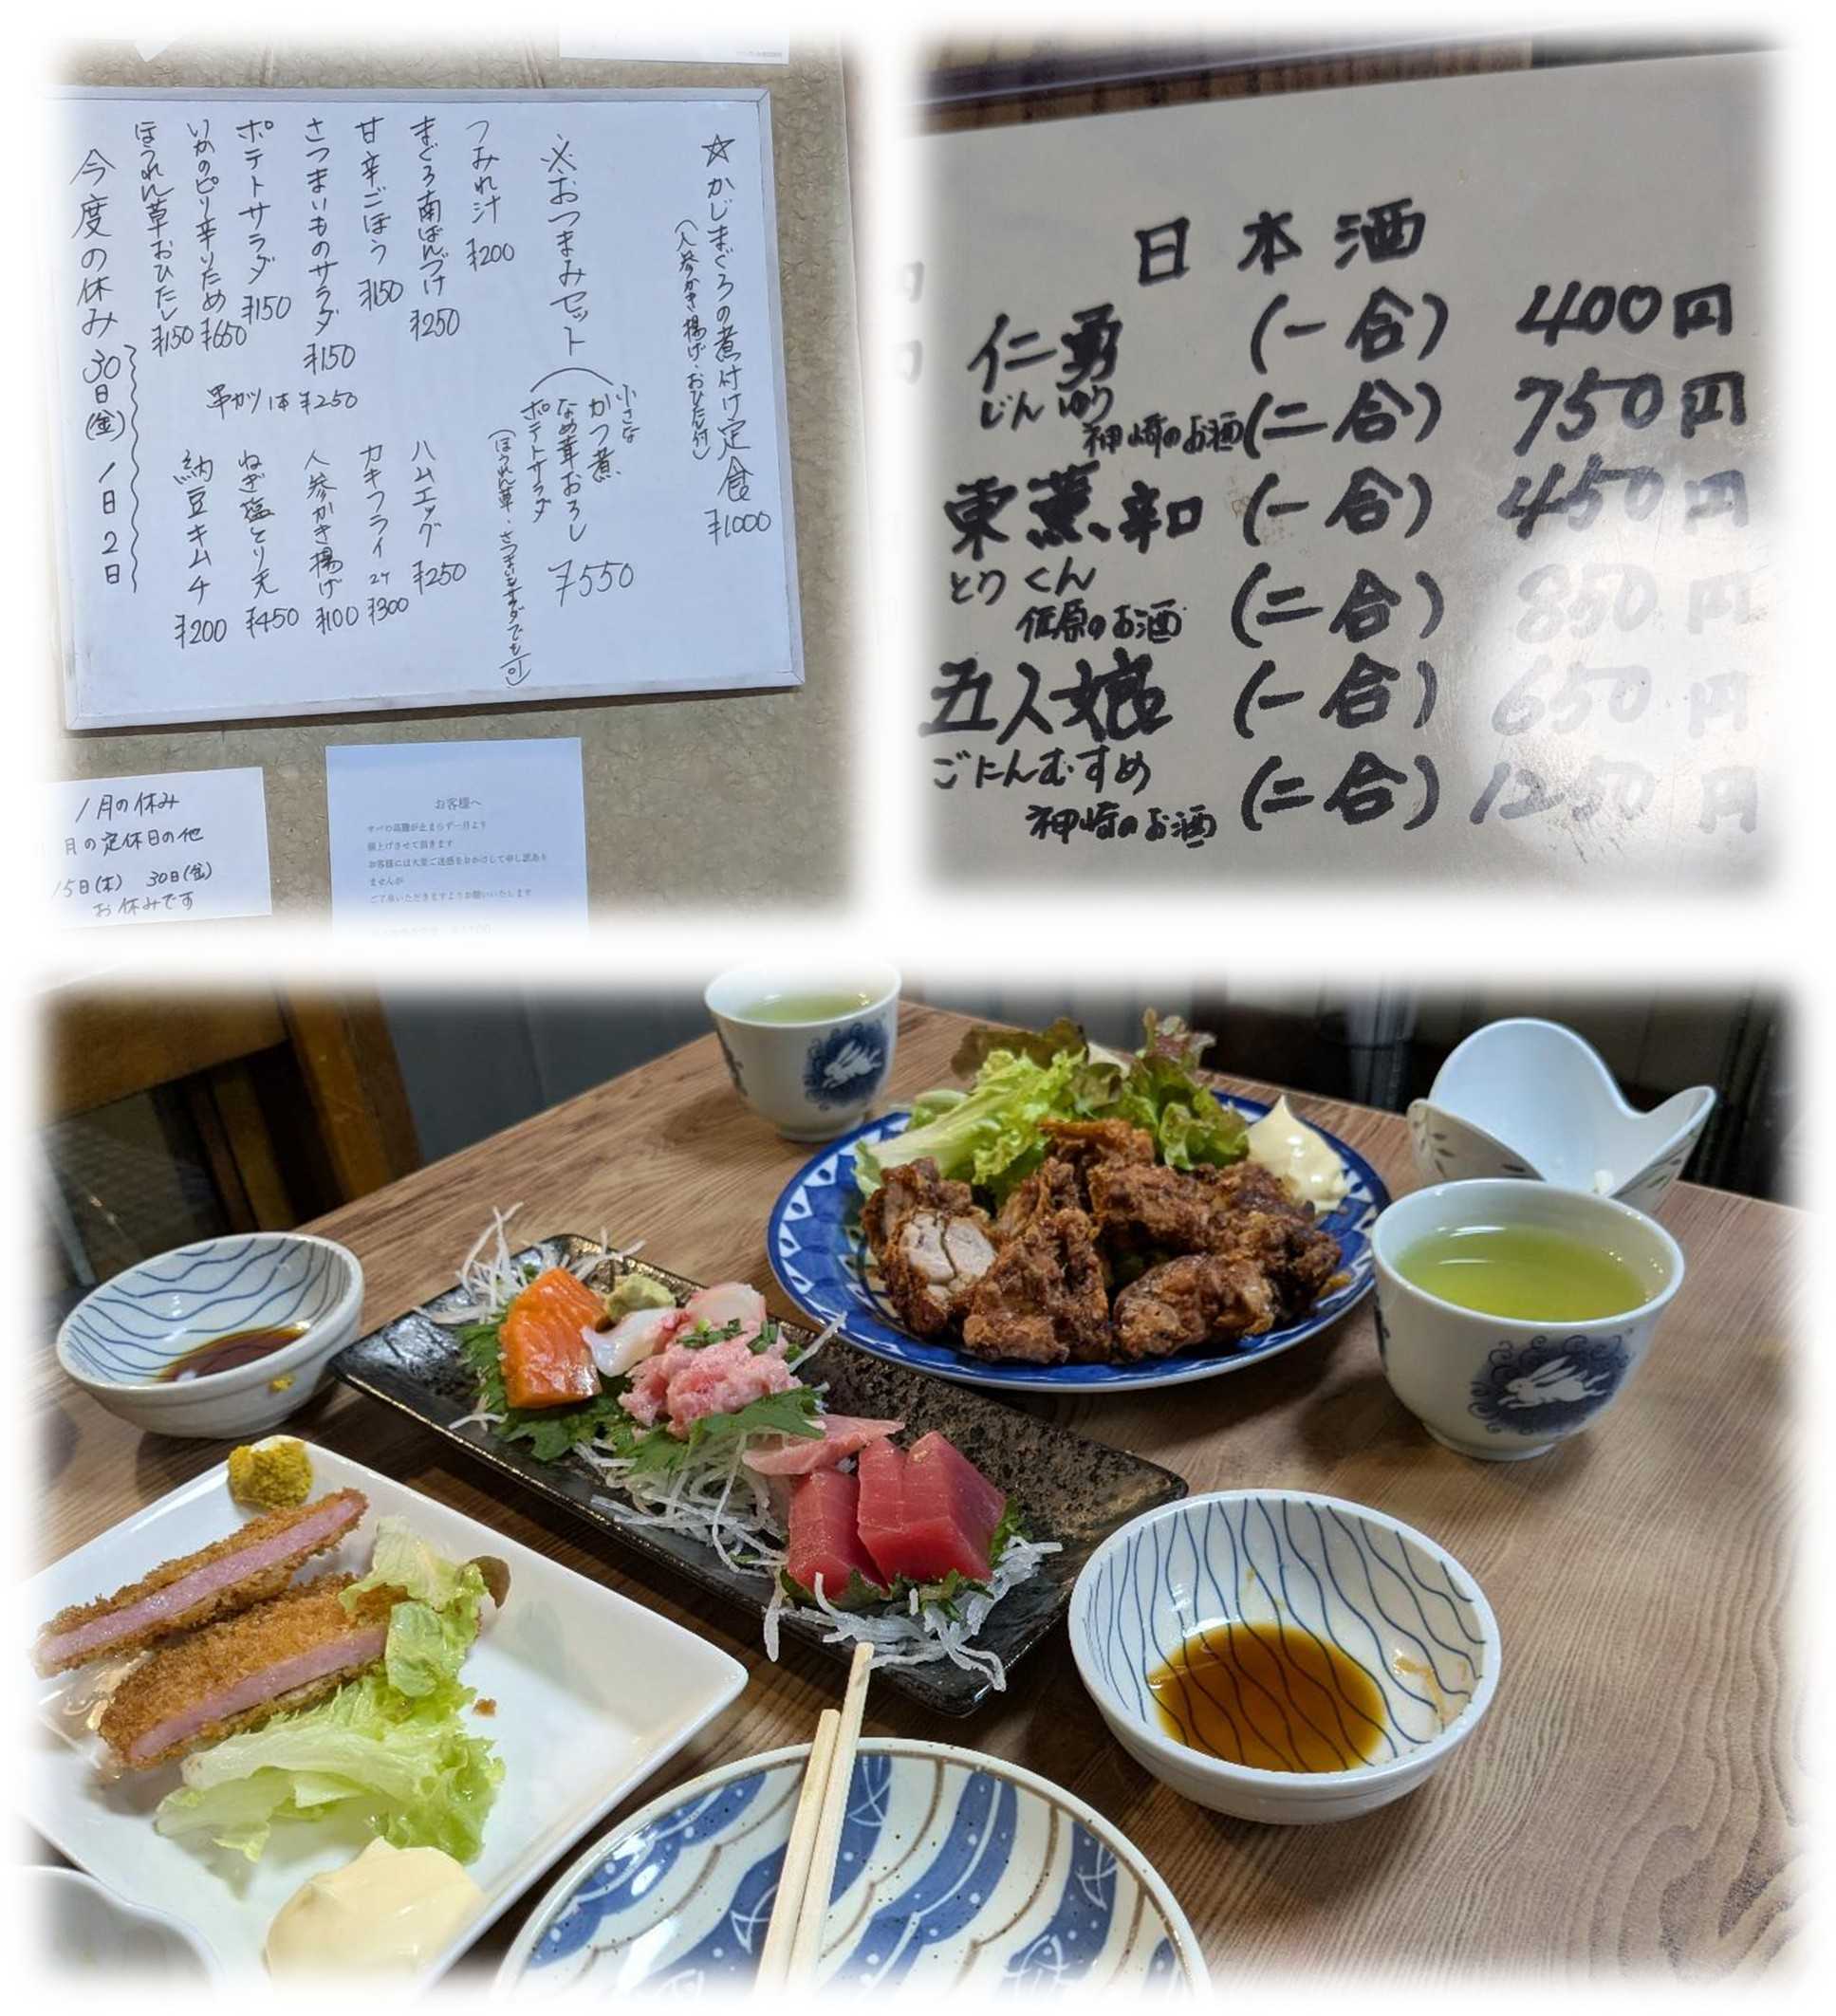 ☆かじまぐろの煮付け定食 ¥1000
(人参かき揚げ・おひたし付)
※おつまみセット
小さな
かつ煮
なめ茸おろし
ポテトサラダ
¥550
(ほうれん草・さつまいもサラダでも可)
つみれ汁 ¥200
まぐろ南ばんづけ ¥250
甘辛ごぼう ¥150
さつまいものサラダ ¥150
ポテトサラダ ¥150
いかのピリ辛いため ¥650
ほうれん草おひたし ¥150
串カツ 1本 ¥250
ハムエッグ ¥250
カキフライ 2ケ ¥300
人参かき揚げ ¥100
ねぎ塩とり天 ¥450
納豆キムチ ¥200
今度の休み 30日(金) 1日 2日
1月の休み
月の定休日の他
15日(木) 30日(金)
お休みです
お客様へ
すべの高騰が止まらず一月より
値上げさせて頂きます
お客様には大変ご迷惑をおかけして申し訳あり
ませんが
ご了承いただきますようお願いいたします
日本酒
仁勇 (一合) 400円
じんゆう
神崎のお酒 (二合) 750円
東薫、辛口 (一合) 450円
とうくん
佐原のお酒 (二合) 850円
五人娘 (一合) 650円
ごにんむすめ
神崎のお酒 (二合) 1250円